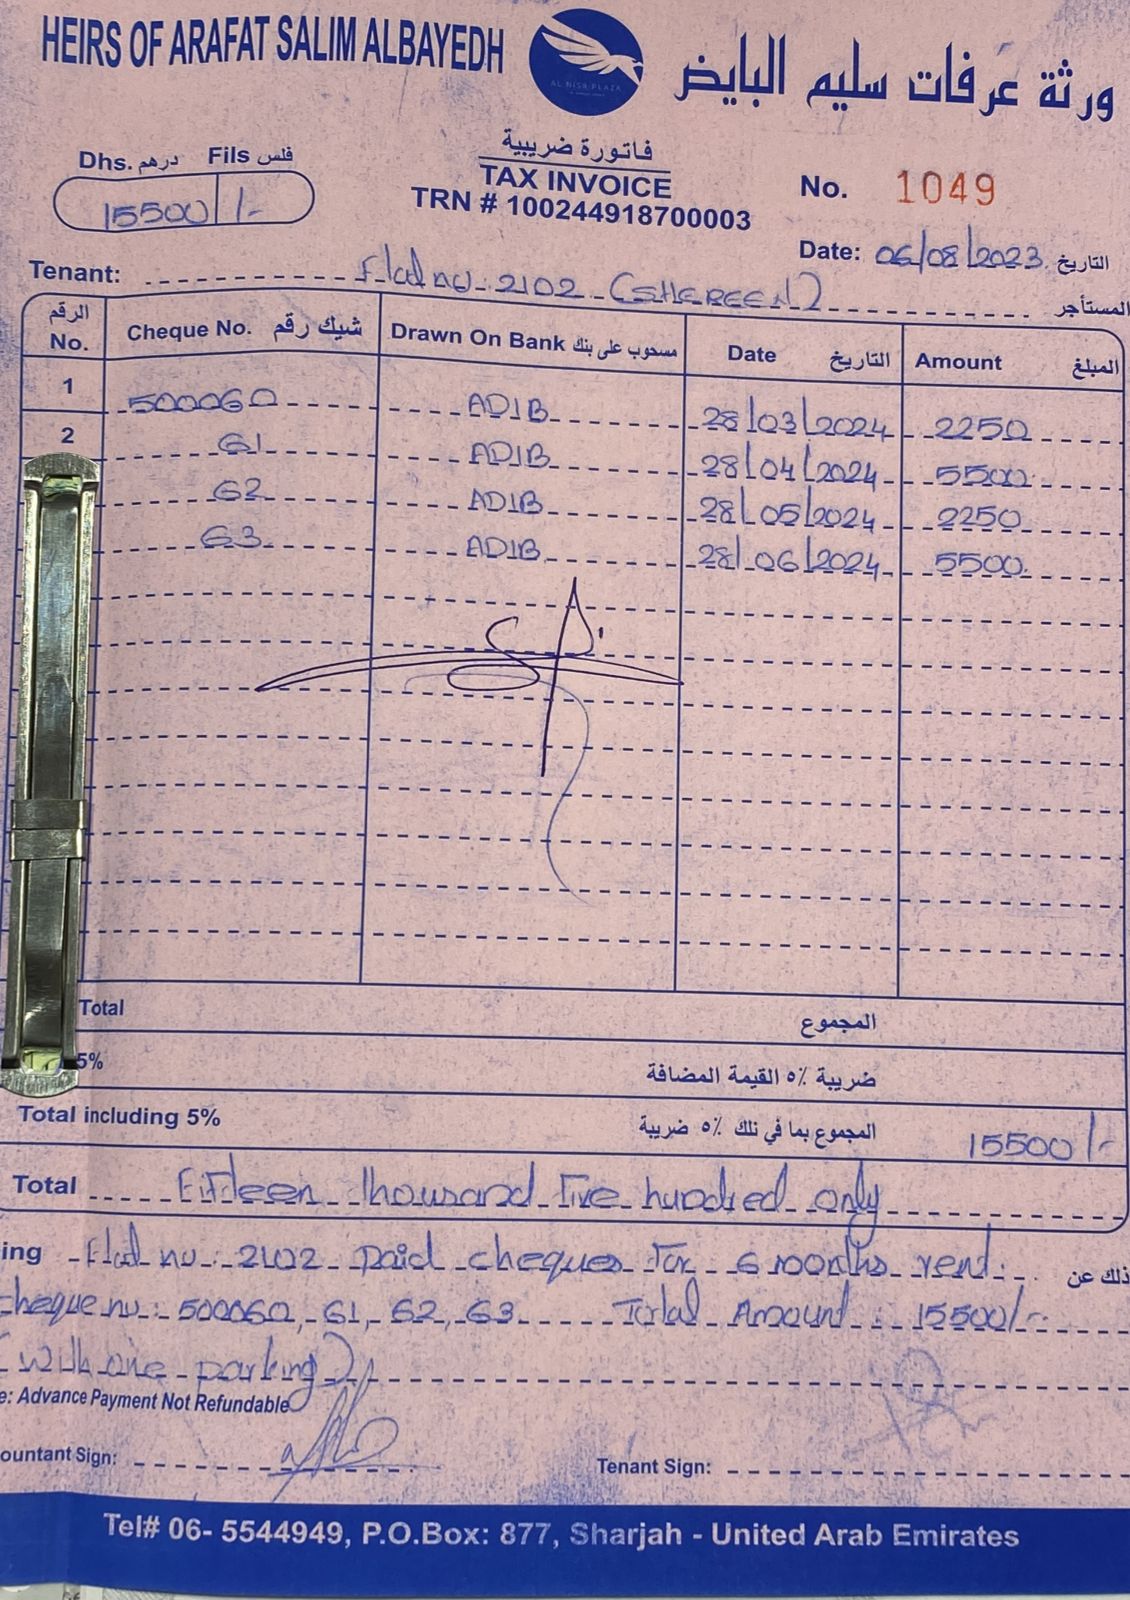 HEIRS OF ARAFAT SALIM ALBAYEDH
AL NISR PLAZA
ورثة عرفات سليم البايض
Dhs. درهم Fils فلس
15500 /-
فاتورة ضريبية
TAX INVOICE
TRN # 100244918700003
No. 1049
Date: 06/08/2023 التاريخ
Tenant: Flat no: 2102 (SHEREEN) المستأجر
الرقم No. Cheque No. شيك رقم Drawn On Bank مسحوب على بنك Date التاريخ Amount المبلغ
1 500060 ADIB 28/03/2024 2250
2 61 ADIB 28/04/2024 5500
62 ADIB 28/05/2024 2250
63 ADIB 28/06/2024 5500
Total المجموع
5% ضريبة ٥٪ القيمة المضافة
Total including 5% المجموع بما في ذلك ٥٪ ضريبة 15500/-
Total Fifteen thousand five hundred only
ing Flat no: 2102 paid cheques for 6 months rent. ذلك عن
cheque no: 500060, 61, 62, 63. Total Amount: 15500/-
(with one parking)
e: Advance Payment Not Refundable
ountant Sign:
Tenant Sign:
Tel# 06- 5544949, P.O.Box: 877, Sharjah - United Arab Emirates